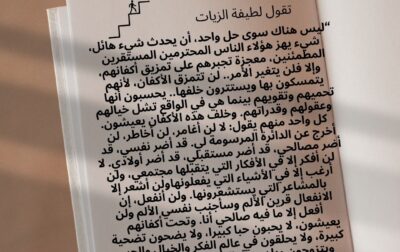 تقول لطيفة الزيات
"ليس هناك سوى حل واحد، أن يحدث شيء هائل،
شيء يهز هؤلاء الناس المحترمين المستقرين
المطمئنين، معجزة تجبرهم على تمزيق أكفانهم،
وإلا فلن يتغير الأمر.. لن تتمزق الأكفان، لأنهم
يتمسكون بها ويستترون خلفها.. يحسبون أنها
تحميهم وتقويهم بينما هي في الواقع تشل خيالهم
وعقولهم وقدراتهم. وخلف هذه الأكفان يعيشون.
كل واحد منهم يقول: لا لن أغامر. لن أخاطر. لن
أخرج عن الدائرة المرسومة لي. قد أضر نفسي، قد
أضر مصالحي، قد أضر مستقبلي، قد أضر أولادي. لا
لن أفكر إلا في الأفكار التي يتقبلها مجتمعي، ولن
أرغب إلا في الأشياء التي يفعلونها ولن أشعر إلا
بالمشاعر التي يستشعرونها. ولن أنفعل، إن
الانفعال قرين الألم وسأجنب نفسي الألم ولن
أفعل إلا ما فيه صالحي أنا. وتحت أكفانهم
يعيشون، لا يحبون حبا كبيرا، ولا يضحون تضحية
كبيرة، ولا يحلقون في عالم الفكر والخيال والحس